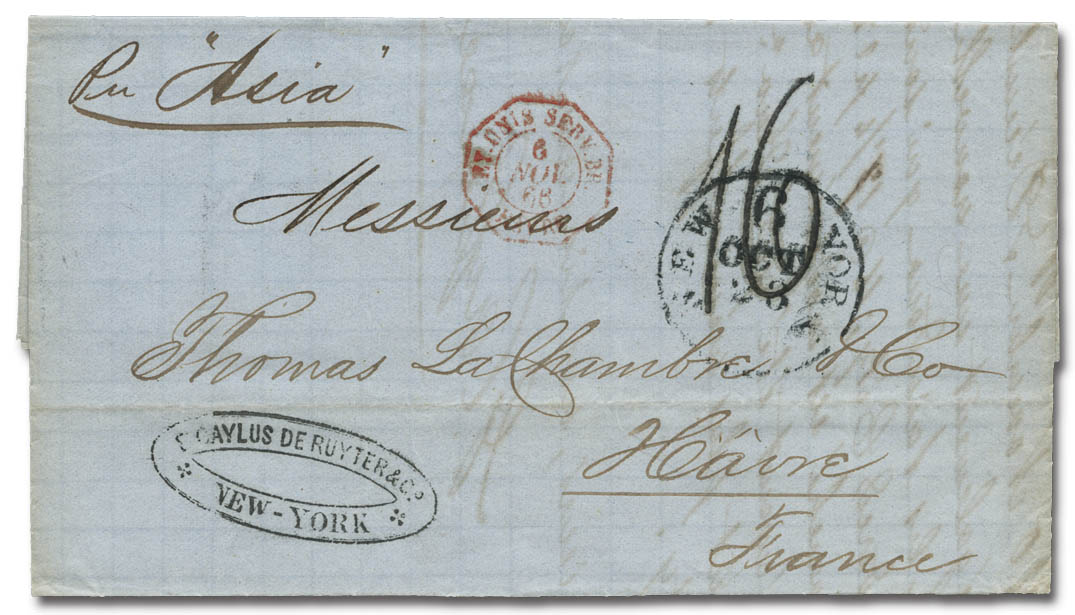 Per "Asia"
ET. UNIS SERV. BR.
6
NOV.
68
16
NEW YORK
6
OCT
28
Messieurs
Thomas LaChambre & Co
Hâvre
France
CAYLUS DE RUYTER & Co
NEW-YORK